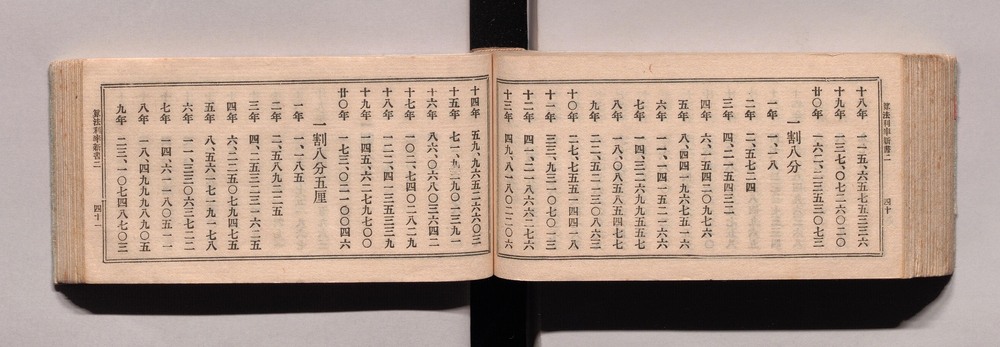 算法利率新書二 四十
十八年 一一五、六五七五三三六
十九年 一三七、〇七二六〇二〇
廿〇年 一六二、二三五三〇七三
一割八分
一年 一、一八
二年 二、五七二四
三年 四、二一五四三二
四年 六、一五四二〇九七六
五年 八、四四一九六七五一六
六年 一一、一四一五二一六六
七年 一四、三二六九九五五七
八年 一八、〇八五八五四七七
九年 二二、五二一三〇八六三
十〇年 二七、七五五一四四一八
十一年 三三、九三一〇七〇一三
十二年 四一、二一八六六二七六
十三年 四九、八一八〇二二〇六
十四年 五九、九六五二六六〇三
十五年 七一、九三九〇一三九一
十六年 八六、〇六八〇三六四二
十七年 一〇二、七四〇二八二九
十八年 一二二、四一三五三三九
十九年 一四五、六二七九七〇〇
廿〇年 一七三、〇二一〇〇四六
一割八分五厘
一年 一、一八五
二年 二、五八九二二五
三年 四、二五三二三一六二五
四年 六、二二五〇七九四七五
五年 八、五六一七一九一七八
六年 一一、三三〇六三七二二
七年 一四、六一一八〇五一一
八年 一八、四九九九八九〇五
九年 二三、一〇七四八七〇三
算法利率新書二 四十一